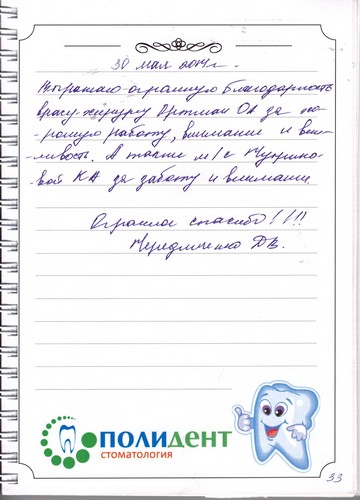 30 мая 2014г.
Выражаю огромную благодарность
врачу-хирургу Ортман ОА за хо-
рошую работу, внимание и веж-
ливость. А также м/с
вой КА за заботу и внимание.
Огромное спасибо!!!!
Чередниченко ДВ.
ПОЛИДЕНТ
СТОМАТОЛОГИЯ
33